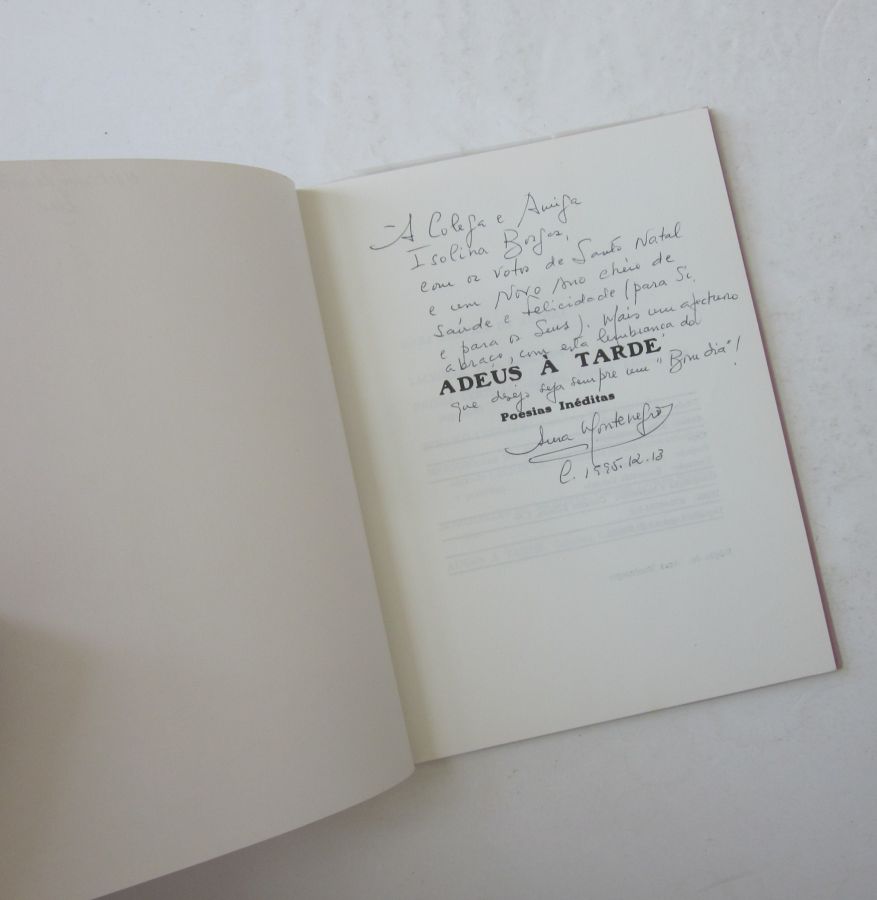 À Colega e Amiga
Isolina Borges,
com os votos de Santo Natal
e um Novo Ano cheio de
saúde e felicidade (para Si
e para os Seus). Mais um afectuoso
abraço, com esta lembrança do
ADEUS À TARDE
que desejo seja sempre um "Bom dia"!
Poesias Inéditas
Ana Montenegro
C. 1995.12.13